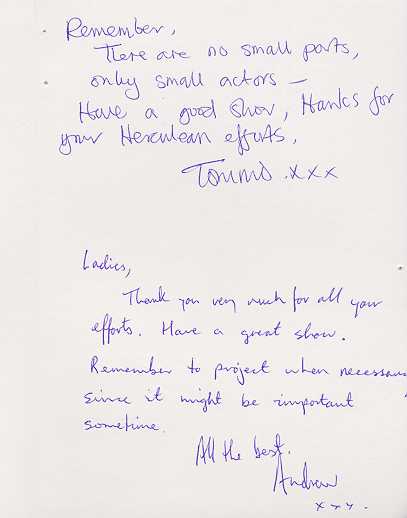 Remember,
There are no small parts,
only small actors —
Have a good show, thanks for
your Herculean efforts,
Tommo .xxx
Ladies,
Thank you very much for all your
efforts. Have a great show.
Remember to project when necessary
since it might be important
sometime.
All the best.
Andrew
xxx.